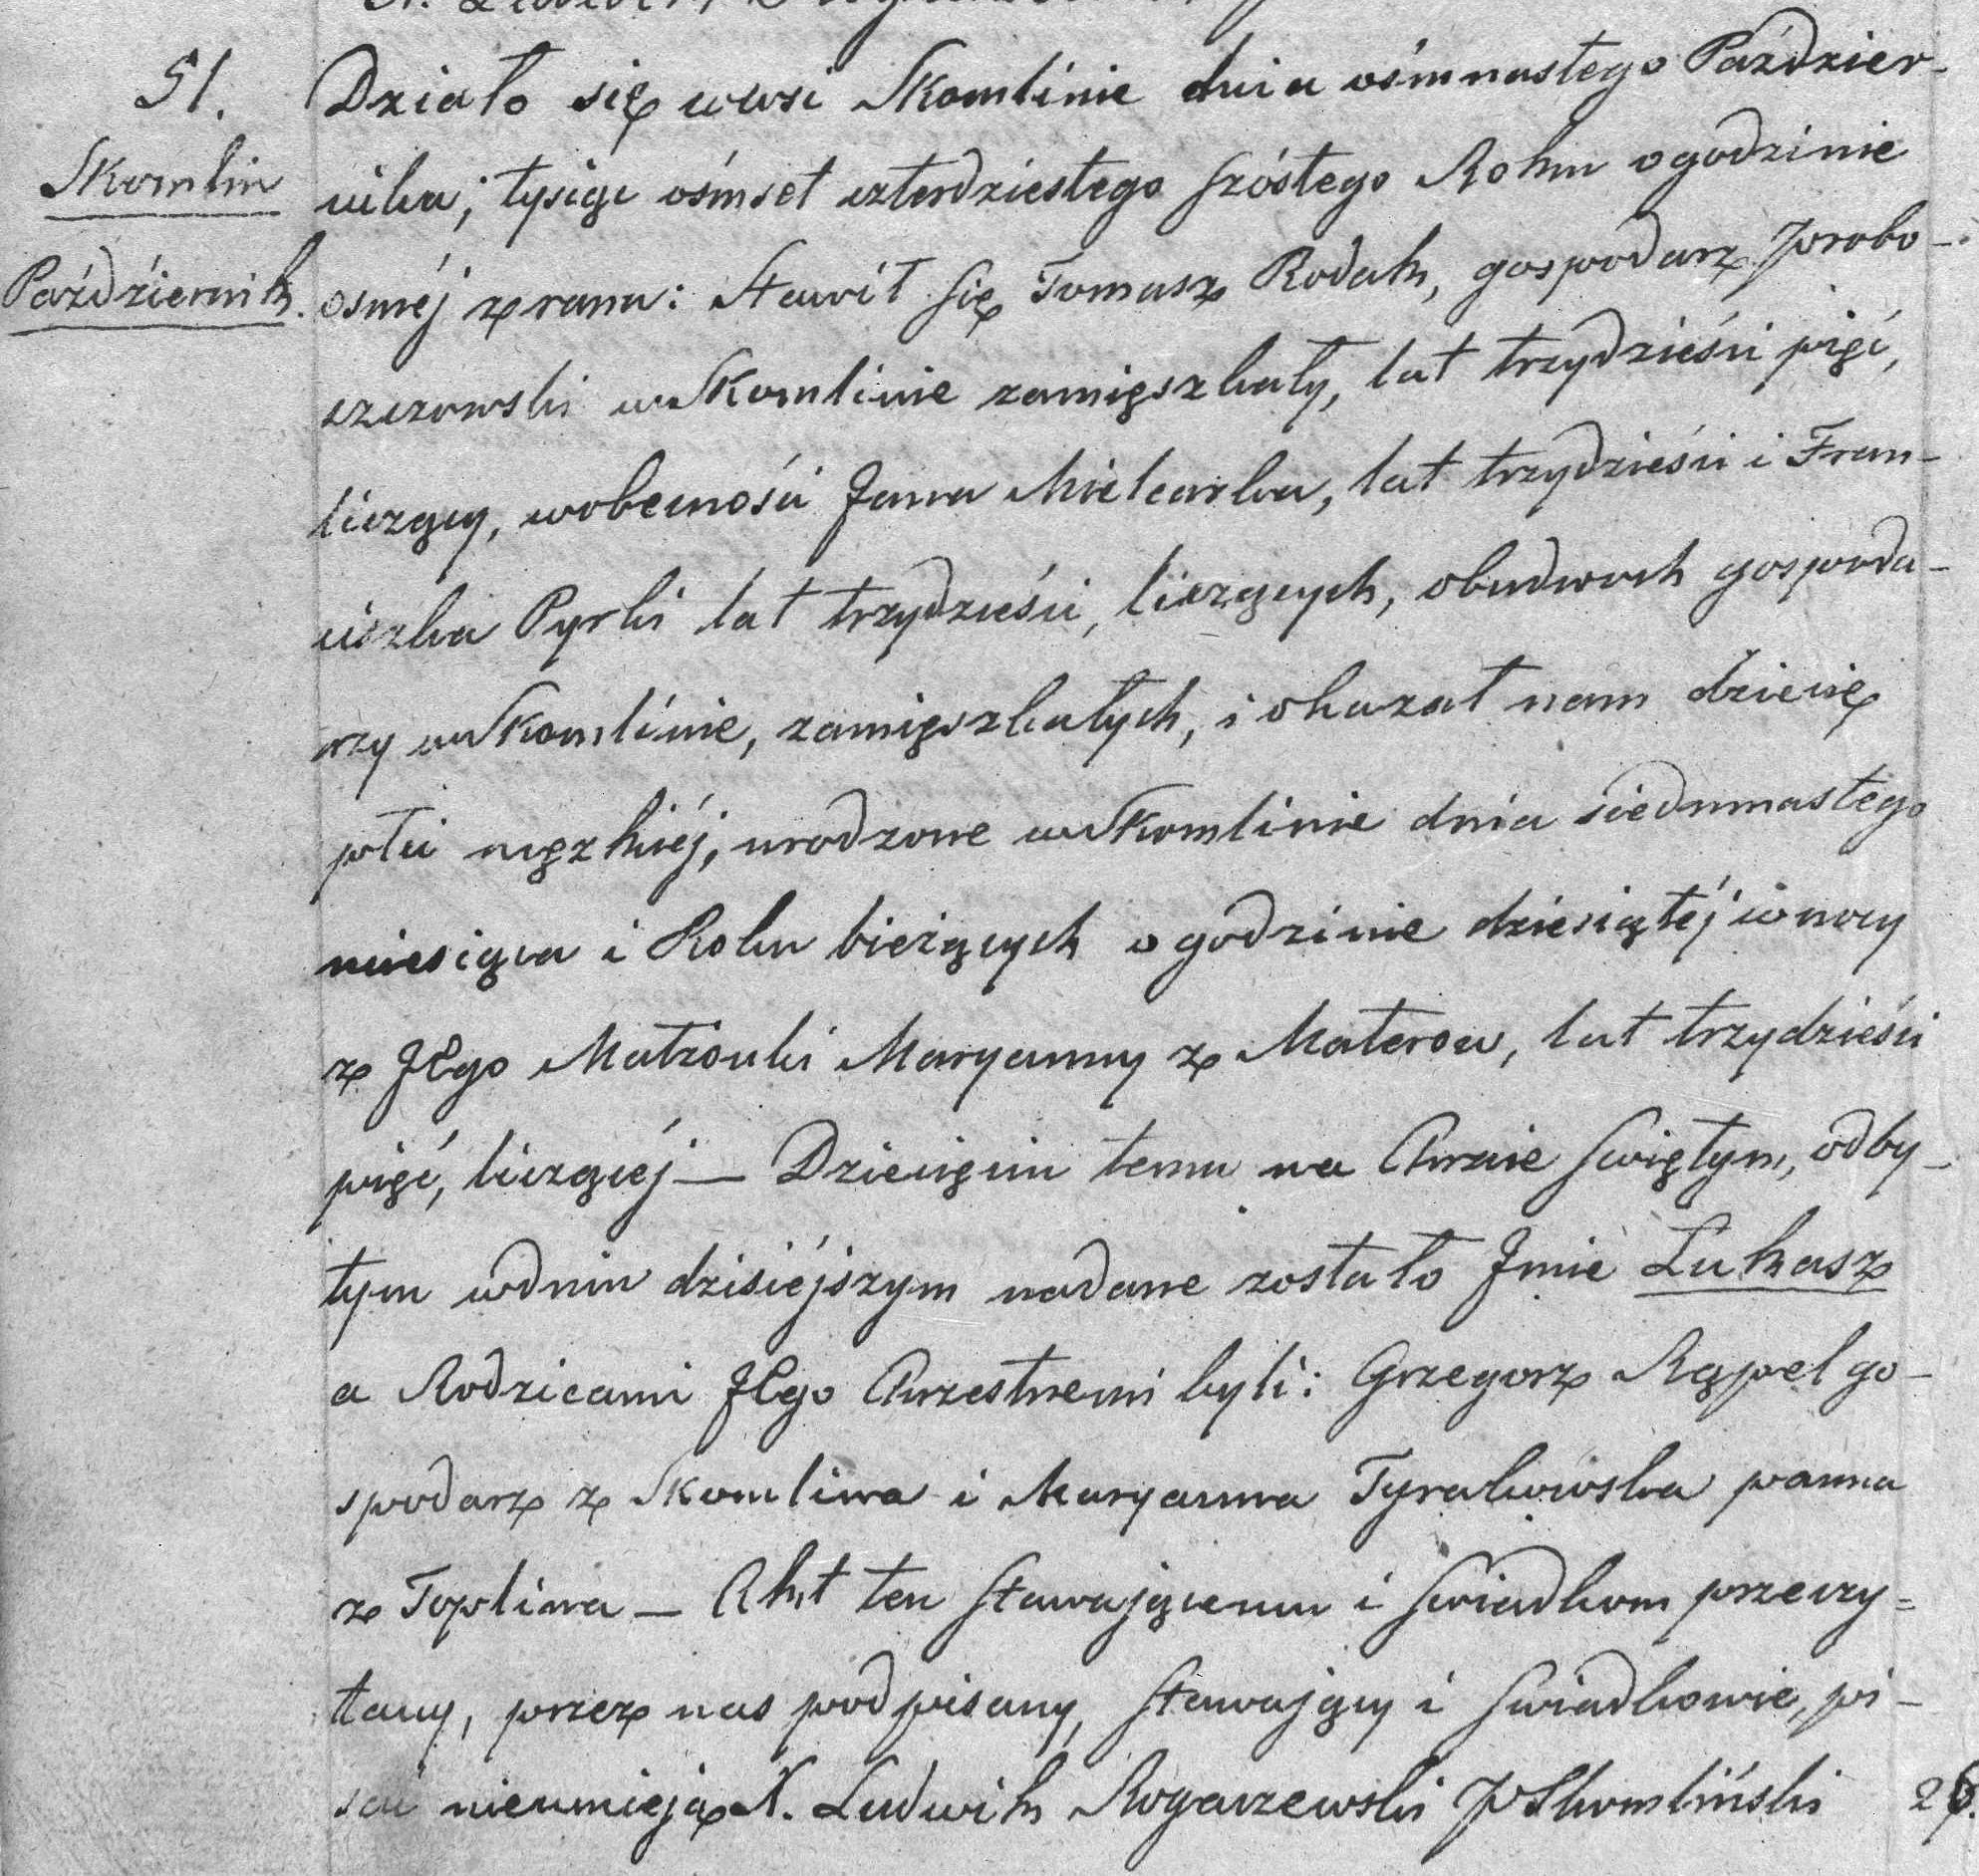 51.
Skomlin
Październik.
Działo się wwsi Skomlinie dnia ośmnastego Paździer-
nika, tysiąc ośmset czterdziestego szóstego Roku ogodzinie
osméj zrana: Stawił się Tomasz Rodak, gospodarz probo-
szczowski w Skomlinie zamięszkały, lat trzydzieści pięć,
liczący, wobecności Jana Mielcarka, lat trzydzieści i Fran-
ciszka Pyrki lat trzydzieści, liczących, obudwuch gospoda-
rzy w Skomlinie, zamięszkałych, i okazał nam dziecię
płci męzkiéj, urodzone w Skomlinie dnia siedmnastego
miesiąca i Roku bieżących o godzinie dziesiątéj wnocy
z JEgo Małżonki Maryanny z Materow, lat trzydzieści
pięć, liczącéj — Dziecięciu temu na Chrzcie Swiętym, odby-
tym wdniu dzisiéjszym nadane zostało Jmie Łukasz
a Rodzicami JEgo Chrzestnemi byli: Grzegorz Kąpel go-
spodarz z Skomlina i Maryanna Tyrakowska panna
z Toplina — Akt ten Stawającemu i Swiadkom przeczy=
tany, przez nas podpisany, Stawający i Swiadkowie, pi-
sać nieumieją X. Ludwik Rogaszewski P Skomliński